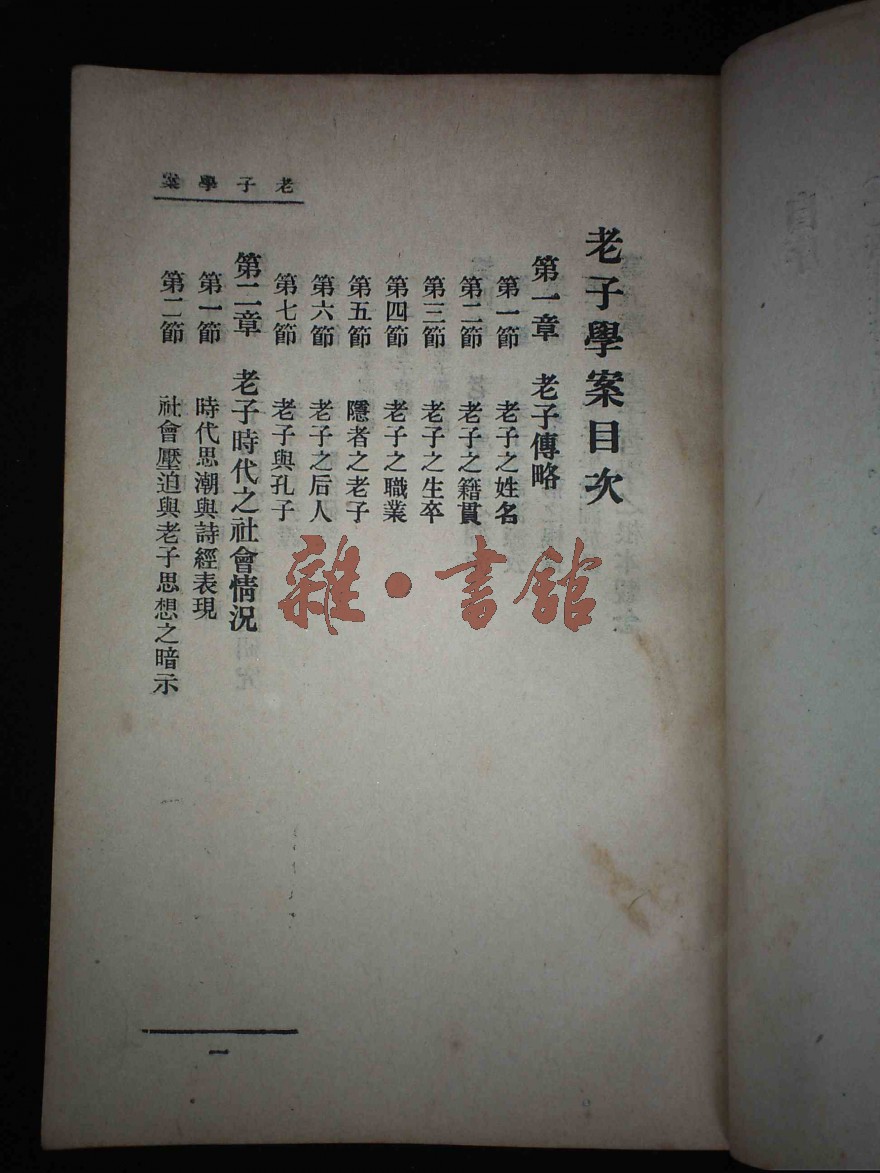 老子學案
老子學案目次
第一章 老子傳略
第一節 老子之姓名
第二節 老子之籍貫
第三節 老子之生卒
第四節 老子之職業
第五節 隱者之老子
第六節 老子之后人
第七節 老子與孔子
第二章 老子時代之社會情況
第一節 時代思潮與詩經表現
第二節 社會壓迫與老子思想之暗示
一
雜·書館
自序